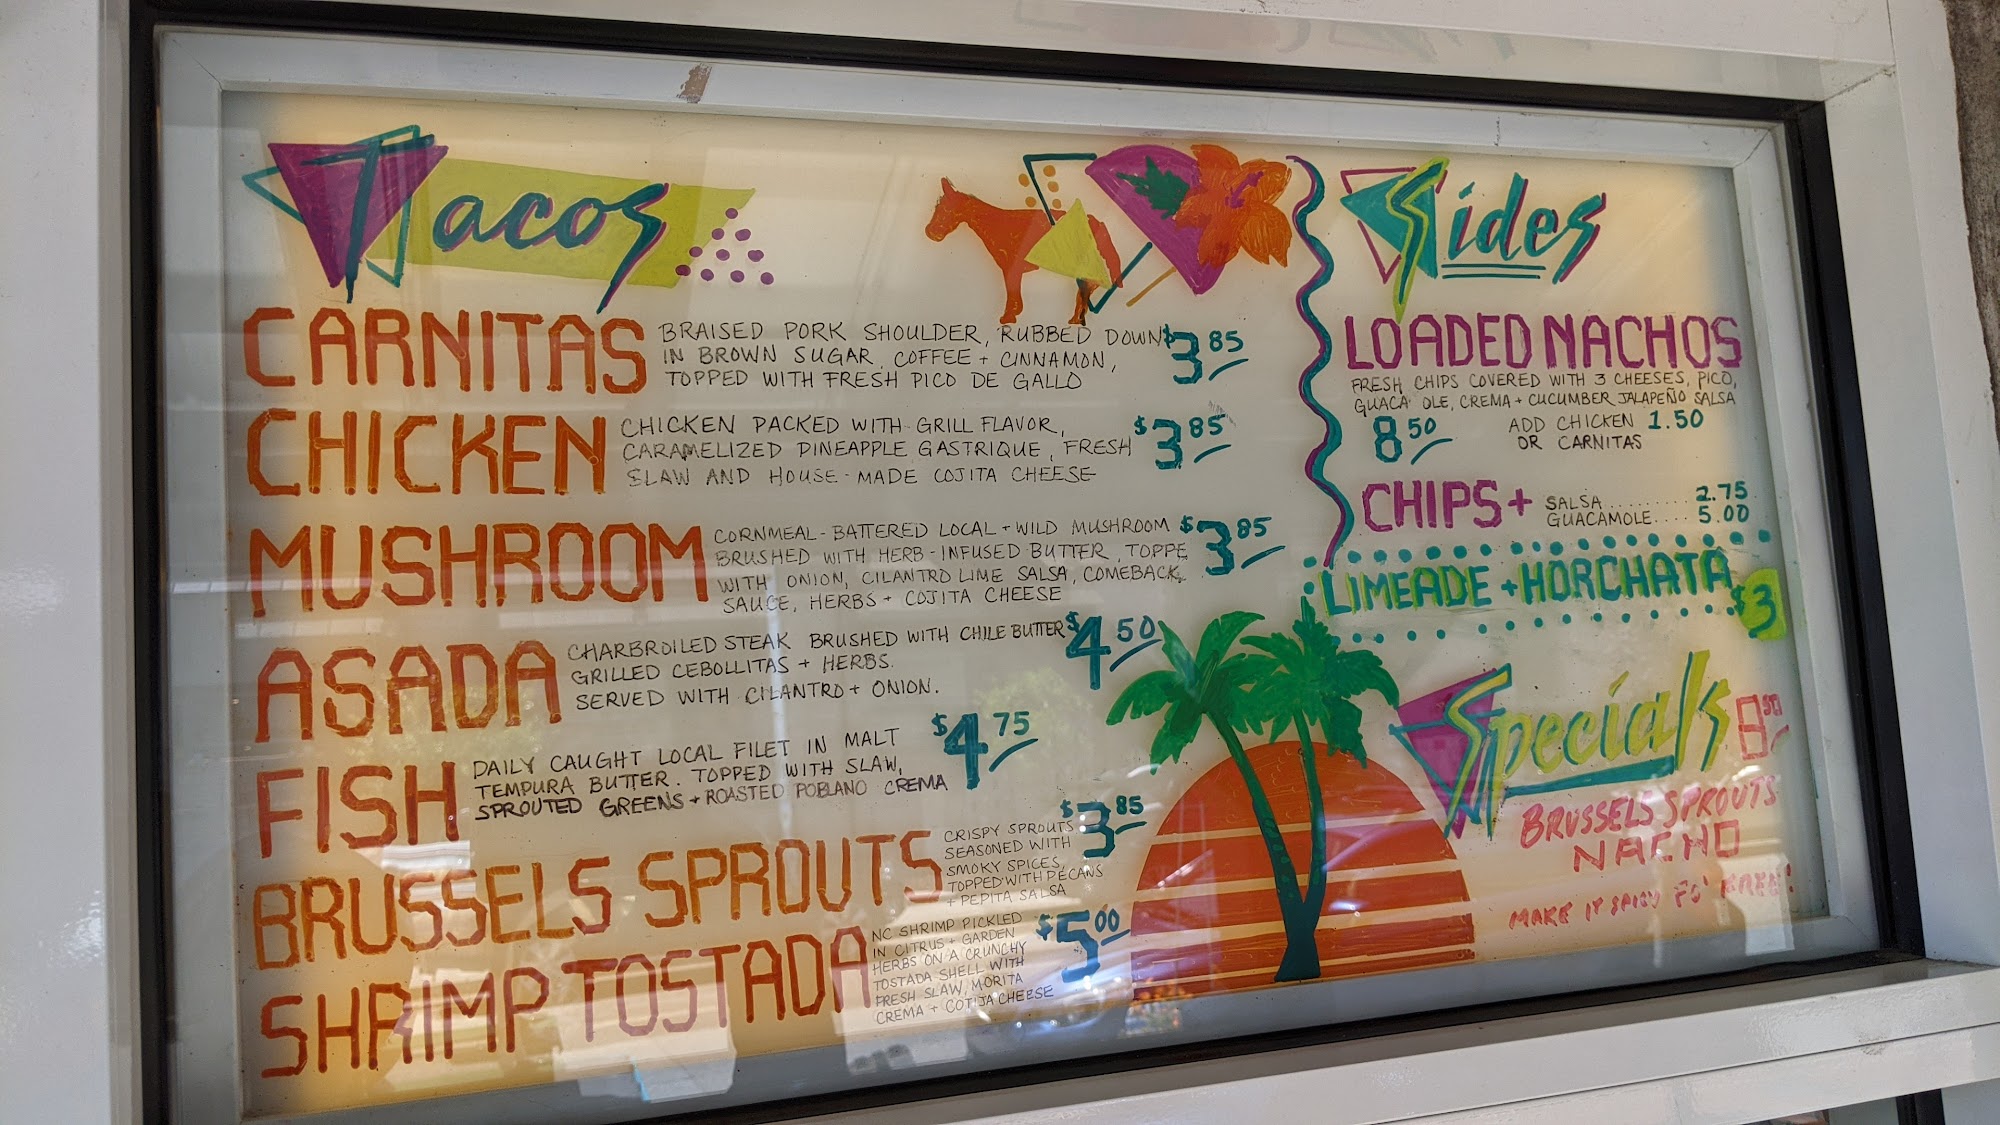 Tacos
CARNITAS
BRAISED PORK SHOULDER, RUBBED DOWN
IN BROWN SUGAR, COFFEE + CINNAMON,
TOPPED WITH FRESH PICO DE GALLO
$3.85
CHICKEN
CHICKEN PACKED WITH GRILL FLAVOR,
CARAMELIZED PINEAPPLE GASTRIQUE, FRESH
SLAW AND HOUSE-MADE COJITA CHEESE
$3.85
MUSHROOM
CORNMEAL-BATTERED LOCAL + WILD MUSHROOM
BRUSHED WITH HERB-INFUSED BUTTER, TOPPE
WITH ONION, CILANTRO LIME SALSA, COMEBACK
SAUCE, HERBS + COJITA CHEESE
$3.85
ASADA
CHARBROILED STEAK BRUSHED WITH CHILE BUTTER
GRILLED CEBOLLITAS + HERBS.
SERVED WITH CILANTRO + ONION.
$4.50
FISH
DAILY CAUGHT LOCAL FILET IN MALT
TEMPURA BUTTER. TOPPED WITH SLAW,
SPROUTED GREENS + ROASTED POBLANO CREMA
$4.75
BRUSSELS SPROUTS
CRISPY SPROUTS
SEASONED WITH
SMOKY SPICES,
TOPPED WITH PECANS
+ PEPITA SALSA
$3.85
SHRIMP TOSTADA
NC SHRIMP PICKLED
IN CITRUS + GARDEN
HERBS ON A CRUNCHY
TOSTADA SHELL WITH
FRESH SLAW, MORITA
CREMA + COTIJA CHEESE
$5.00
Sides
LOADED NACHOS
FRESH CHIPS COVERED WITH 3 CHEESES, PICO,
GUACA OLE, CREMA + CUCUMBER JALAPEÑO SALSA
8.50
ADD CHICKEN 1.50
OR CARNITAS
CHIPS +
SALSA ......... 2.75
GUACAMOLE .... 5.00
LIMEADE + HORCHATA
$3
Specials
8.50
BRUSSELS SPROUTS
NACHO
MAKE IT SPICY FO' FREE!